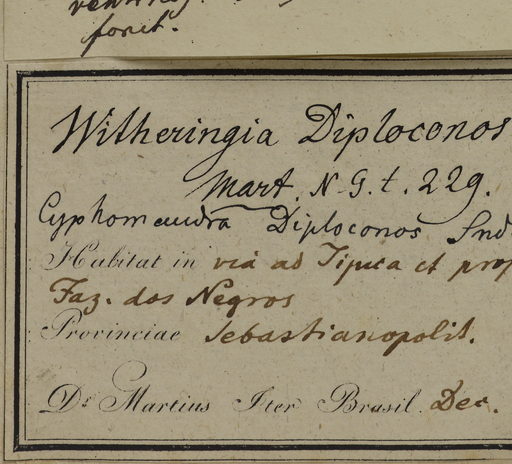 foret.
Witheringia Diploconos
Mart. N. G. t. 229.
Cyphomandra Diploconos Snd
Habitat in via ad Tijuca et prop
Faz. dos Negros
Provinciae Sebastianopolit.
Dr Martius Iter Brasil. Dec.